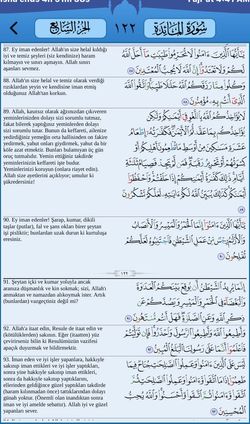 سورة المائدة ١٢٢ الجزء السابع
87. Ey iman edenler! Allah'ın size helal kıldığı
iyi ve temiz şeyleri (siz kendinize) haram
kılmayın ve sınırı aşmayın. Allah sınırı
aşanları sevmez.
يَا أَيُّهَا الَّذِينَ آمَنُوا لَا تُحَرِّمُوا طَيِّبَاتِ مَا أَحَلَّ اللَّهُ
لَكُمْ وَلَا تَعْتَدُوا إِنَّ اللَّهَ لَا يُحِبُّ الْمُعْتَدِينَ ٨٧
88. Allah'ın size helal ve temiz olarak verdiği
rızıklardan yeyin ve kendisine iman etmiş
olduğunuz Allah'tan korkun.
وَكُلُوا مِمَّا رَزَقَكُمُ اللَّهُ حَلَالًا طَيِّبًا وَاتَّقُوا اللَّهَ
الَّذِي أَنْتُمْ بِهِ مُؤْمِنُونَ ٨٨
89. Allah, kasıtsız olarak ağzınızdan çıkıveren
yeminlerinizden dolayı sizi sorumlu tutmaz,
fakat bilerek yaptığınız yeminlerden dolayı
sizi sorumlu tutar. Bunun da keffareti, ailenize
yedirdiğiniz yemeğin orta hallisinden on fakire
yedirmek, yahut onları giydirmek, yahut da bir
köle azat etmektir. Bunları bulamayan üç gün
oruç tutmalıdır. Yemin ettiğiniz takdirde
yeminlerinizin keffareti işte budur.
Yeminlerinizi koruyun (onlara riayet edin).
Allah size ayetlerini açıklıyor; umulur ki
şükredersiniz!
لَا يُؤَاخِذُكُمُ اللَّهُ بِاللَّغْوِ فِي أَيْمَانِكُمْ وَلَكِنْ
يُؤَاخِذُكُمْ بِمَا عَقَّدْتُمُ الْأَيْمَانَ فَكَفَّارَتُهُ إِطْعَامُ
عَشَرَةِ مَسَاكِينَ مِنْ أَوْسَطِ مَا تُطْعِمُونَ أَهْلِيكُمْ
أَوْ كِسْوَتُهُمْ أَوْ تَحْرِيرُ رَقَبَةٍ فَمَنْ لَمْ يَجِدْ فَصِيَامُ ثَلَاثَةِ
أَيَّامٍ ذَلِكَ كَفَّارَةُ أَيْمَانِكُمْ إِذَا حَلَفْتُمْ وَاحْفَظُوا
أَيْمَانَكُمْ كَذَلِكَ يُبَيِّنُ اللَّهُ لَكُمْ آيَاتِهِ لَعَلَّكُمْ تَشْكُرُونَ
٨٩
90. Ey iman edenler! Şarap, kumar, dikili
taşlar (putlar), fal ve şans okları birer şeytan
işi pisliktir; bunlardan uzak durun ki kurtuluşa
eresiniz.
يَا أَيُّهَا الَّذِينَ آمَنُوا إِنَّمَا الْخَمْرُ وَالْمَيْسِرُ وَالْأَنْصَابُ
وَالْأَزْلَامُ رِجْسٌ مِنْ عَمَلِ الشَّيْطَانِ فَاجْتَنِبُوهُ لَعَلَّكُمْ
تُفْلِحُونَ ٩٠
١٢٢
91. Şeytan içki ve kumar yoluyla ancak
aranıza düşmanlık ve kin sokmak; sizi, Allah'ı
anmaktan ve namazdan alıkoymak ister. Artık
(bunlardan) vazgeçtiniz değil mi?
إِنَّمَا يُرِيدُ الشَّيْطَانُ أَنْ يُوقِعَ بَيْنَكُمُ الْعَدَاوَةَ
وَالْبَغْضَاءَ فِي الْخَمْرِ وَالْمَيْسِرِ وَيَصُدَّكُمْ عَنْ
ذِكْرِ اللَّهِ وَعَنِ الصَّلَاةِ فَهَلْ أَنْتُمْ مُنْتَهُونَ ٩١
92. Allah'a itaat edin, Resule de itaat edin ve
(kötülüklerden) sakının. Eğer (itaatten) yüz
çevirirseniz bilin ki Resulümüzün vazifesi
apaçık duyurmak ve bildirmektir.
وَأَطِيعُوا اللَّهَ وَأَطِيعُوا الرَّسُولَ وَاحْذَرُوا فَإِنْ تَوَلَّيْتُمْ
فَاعْلَمُوا أَنَّمَا عَلَى رَسُولِنَا الْبَلَاغُ الْمُبِينُ ٩٢
93. İman eden ve iyi işler yapanlara, hakkıyla
sakınıp iman ettikleri ve iyi işler yaptıkları,
sonra yine hakkıyla sakınıp iman ettikleri,
sonra da hakkıyla sakınıp yaptıklarını,
ellerinden geldiğince güzel yaptıkları takdirde
(haram kılınmadan önce) tattıklarından dolayı
günah yoktur. (Önemli olan inandıktan sonra
iman ve iyi amelde sebattır). Allah iyi ve güzel
yapanları sever.
لَيْسَ عَلَى الَّذِينَ آمَنُوا وَعَمِلُوا الصَّالِحَاتِ جُنَاحٌ فِيمَا
طَعِمُوا إِذَا مَا اتَّقَوْا وَآمَنُوا وَعَمِلُوا الصَّالِحَاتِ
ثُمَّ اتَّقَوْا وَآمَنُوا ثُمَّ اتَّقَوْا وَأَحْسَنُوا وَاللَّهُ يُحِبُّ
الْمُحْسِنِينَ ٩٣